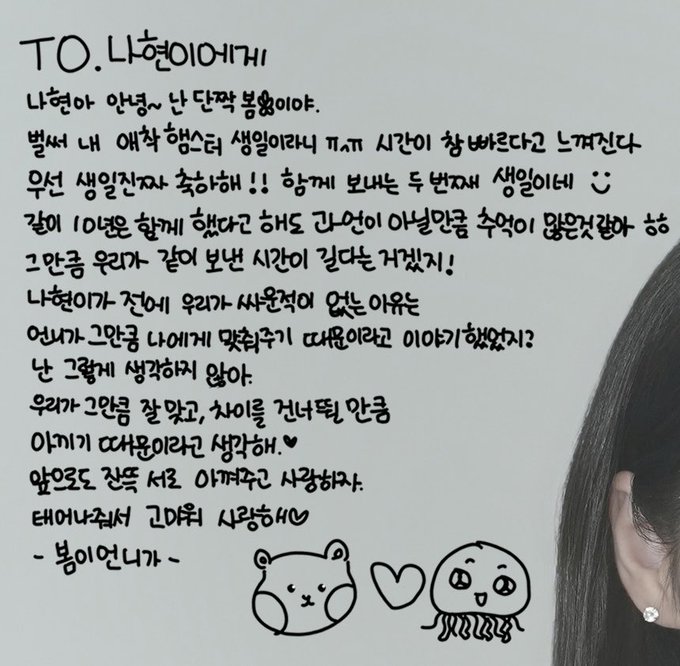 TO. 나현이에게
나현아 안녕~ 난 단짝 봄이야.
벌써 내 애착 햄스터 생일이라니 ㅠㅅㅠ 시간이 참 빠르다고 느껴진다
우선 생일진짜 축하해!! 함께 보내는 두 번째 생일이네
같이 10년은 함께 했다고 해도 과언이 아닐만큼 추억이 많은것같아 ㅎㅎ
그만큼 우리가 같이 보낸 시간이 길다는 거겠지!
나현이가 전에 우리가 싸운적이 없는 이유는
언니가 그만큼 나에게 맞춰주기 때문이라고 이야기했었지?
난 그렇게 생각하지 않아.
우리가 그만큼 잘 맞고, 차이를 건너뛸 만큼
아끼기 때문이라고 생각해.♥
앞으로도 잔뜩 서로 아껴주고 사랑하자.
태어나줘서 고마워 사랑해♡
- 봄이언니가 -